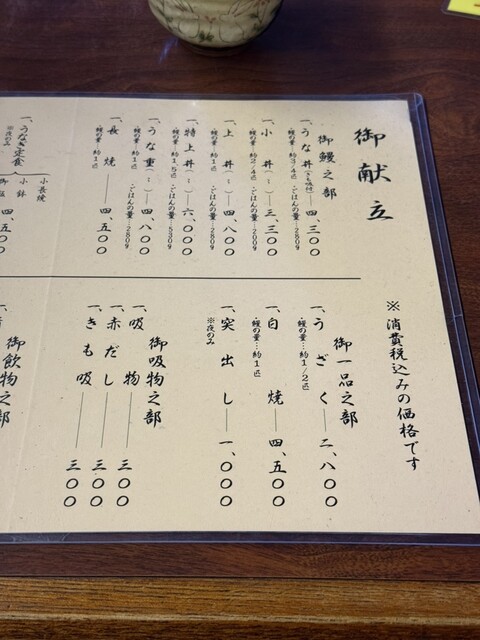 御献立
※消費税込みの価格です
御鰻之部
一、うな丼(きも吸付)―四、三〇〇
・鰻の量…約3/4匹 ・ごはんの量…280g
一、小丼(〃)―三、三〇〇
・鰻の量…約2/4匹 ・ごはんの量…200g
一、上丼(〃)―四、八〇〇
・鰻の量…約1匹 ・ごはんの量…280g
一、特上丼(〃)―六、〇〇〇
・鰻の量…約1.5匹 ・ごはんの量…530g
一、うな重(〃)―四、八〇〇
・鰻の量…約1匹 ・ごはんの量…280g
一、長焼―四、五〇〇
・鰻の量…約1匹
一、うなぎ定食
※夜のみ
小長焼
小鉢
四、五〇〇
御一品之部
一、うざく―二、八〇〇
・鰻の量…約1/2匹
一、白焼―四、五〇〇
・鰻の量…約1匹
一、突出し―一、〇〇〇
※夜のみ
御吸物之部
一、吸物―三〇〇
一、赤だし―三〇〇
一、きも吸―三〇〇
御飲物之部